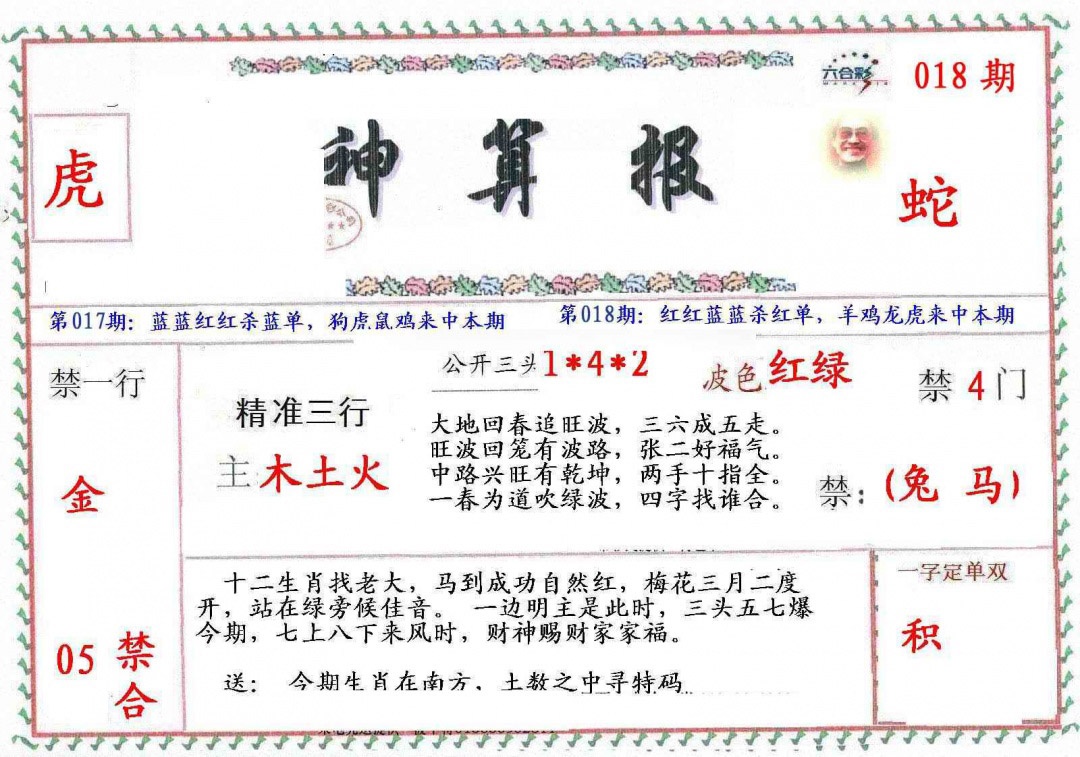 六合彩
018 期
神算报
虎
蛇
第017期：蓝蓝红红杀蓝单，狗虎鼠鸡来中本期
第018期：红红蓝蓝杀红单，羊鸡龙虎来中本期
禁一行
金
05 禁合
精准三行
主 木土火
公开三头 1*4*2
波色 红绿
大地回春追旺波，三六成五走。
旺波回笼有波路，张二好福气。
中路兴旺有乾坤，两手十指全。
一春为道吹绿波，四字找谁合。
禁 4 门
禁：(兔 马)
十二生肖找老大，马到成功自然红，梅花三月二度
开，站在绿旁候佳音。 一边明主是此时，三头五七爆
今期，七上八下来风时，财神赐财家家福。
送： 今期生肖在南方，土数之中寻特码
一字定单双
积